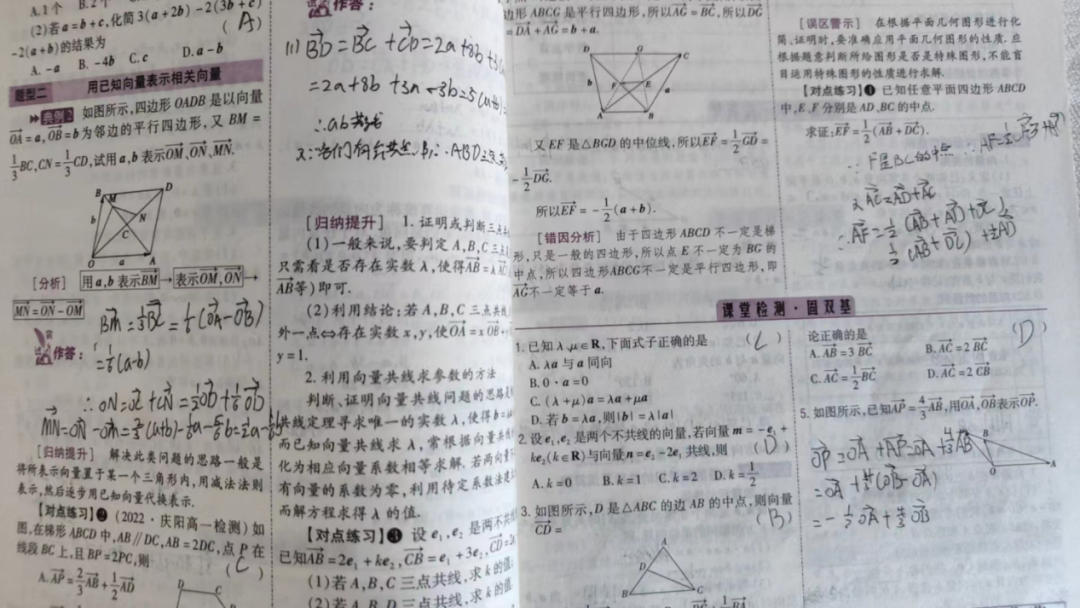 A.1个 B.2个
(2)若a=b+c,化简3(a+2b)-2(3b+c)
-2(a+b)的结果为 (A)
A.-a B.-4b C.c D.a-b
题型二 用已知向量表示相关向量
典例2 如图所示,四边形OADB是以向量
OA=a,OB=b为邻边的平行四边形,又BM=
1/3BC,CN=1/3CD,试用a,b表示OM,ON,MN.
B M D
b N
C
O a A
[分析] 用a,b表示BM→表示OM,ON→
MN=ON-OM
作答:
=1/6(a-b)
[归纳提升] 解决此类问题的思路一般是
将所表示向量置于某一个三角形内,用减法法则
表示,然后逐步用已知向量代换表示.
【对点练习】❷ (2022·庆阳高一检测)如
图,在梯形ABCD中,AB∥DC,AB=2DC,点P在
线段BC上,且BP=2PC,则 (C)
A.AP=2/3AB+1/2AD
D C
作答:
(1)BD=BC+CD=2a+8b+3(
=2a+8b+3a-3b=5(a+b)
[归纳提升] 1.证明或判断三点共
(1)一般来说,要判定A,B,C三点
只需看是否存在实数λ,使得AB=λAC
AB等)即可.
(2)利用结论:若A,B,C三点共线
外一点⇔存在实数x,y,使OA=xOB+
y=1.
2.利用向量共线求参数的方法
判断、证明向量共线问题的思路是
共线定理寻求唯一的实数λ,使得b=λa
而已知向量共线求λ,常根据向量共线
化为相应向量系数相等求解.若两向量
有向量的系数为零,利用待定系数法
而解方程求得λ的值.
【对点练习】❸ 设e1,e2是两不共
已知AB=2e1+ke2,CB=e1+3e2,CD=2
(1)若A,B,C三点共线,求k的值;
(2)若A,B,D三点共线,求k的值
边形ABCG是平行四边形,所以AG=BC,所以DG
=DA+AG=b+a.
D G C
b F E a
A B
又EF是△BGD的中位线,所以EF=1/2GD=
-1/2DG.
所以EF=-1/2(a+b).
[错因分析] 由于四边形ABCD不一定是梯
形,只是一般的四边形,所以点E不一定为BG的
中点,所以四边形ABCG不一定是平行四边形,即
AG不一定等于a.
[误区警示] 在根据平面几何图形进行化
简、证明时,要准确应用平面几何图形的性质,应
根据题意判断所给图形是否是特殊图形,不能盲
目运用特殊图形的性质进行求解.
【对点练习】❹ 已知任意平面四边形ABCD
中,E、F分别是AD、BC的中点.
求证:EF=1/2(AB+DC).
∵F是BC的中点
课堂检测·固双基
1.已知λ,μ∈R,下面式子正确的是 (C)
A.λa与a同向
B.0·a=0
C.(λ+μ)a=λa+μa
D.若b=λa,则|b|=λ|a|
2.设e1,e2是两个不共线的向量,若向量m=-e1+
ke2(k∈R)与向量n=e2-2e1共线,则 (D)
A.k=0 B.k=1 C.k=2 D.k=1/2
3.如图所示,D是△ABC的边AB的中点,则向量
CD= (B)
A
D
B C
论正确的是 (D)
A.AB=3BC B.AC=2BC
C.AC=1/2BC D.AC=2CB
5.如图所示,已知AP=4/3AB,用OA,OB表示OP.
OP=OA+AP=OA+4/3AB
=OA+4/3(OB-OA)
=-1/3OA+4/3OB
B
O A